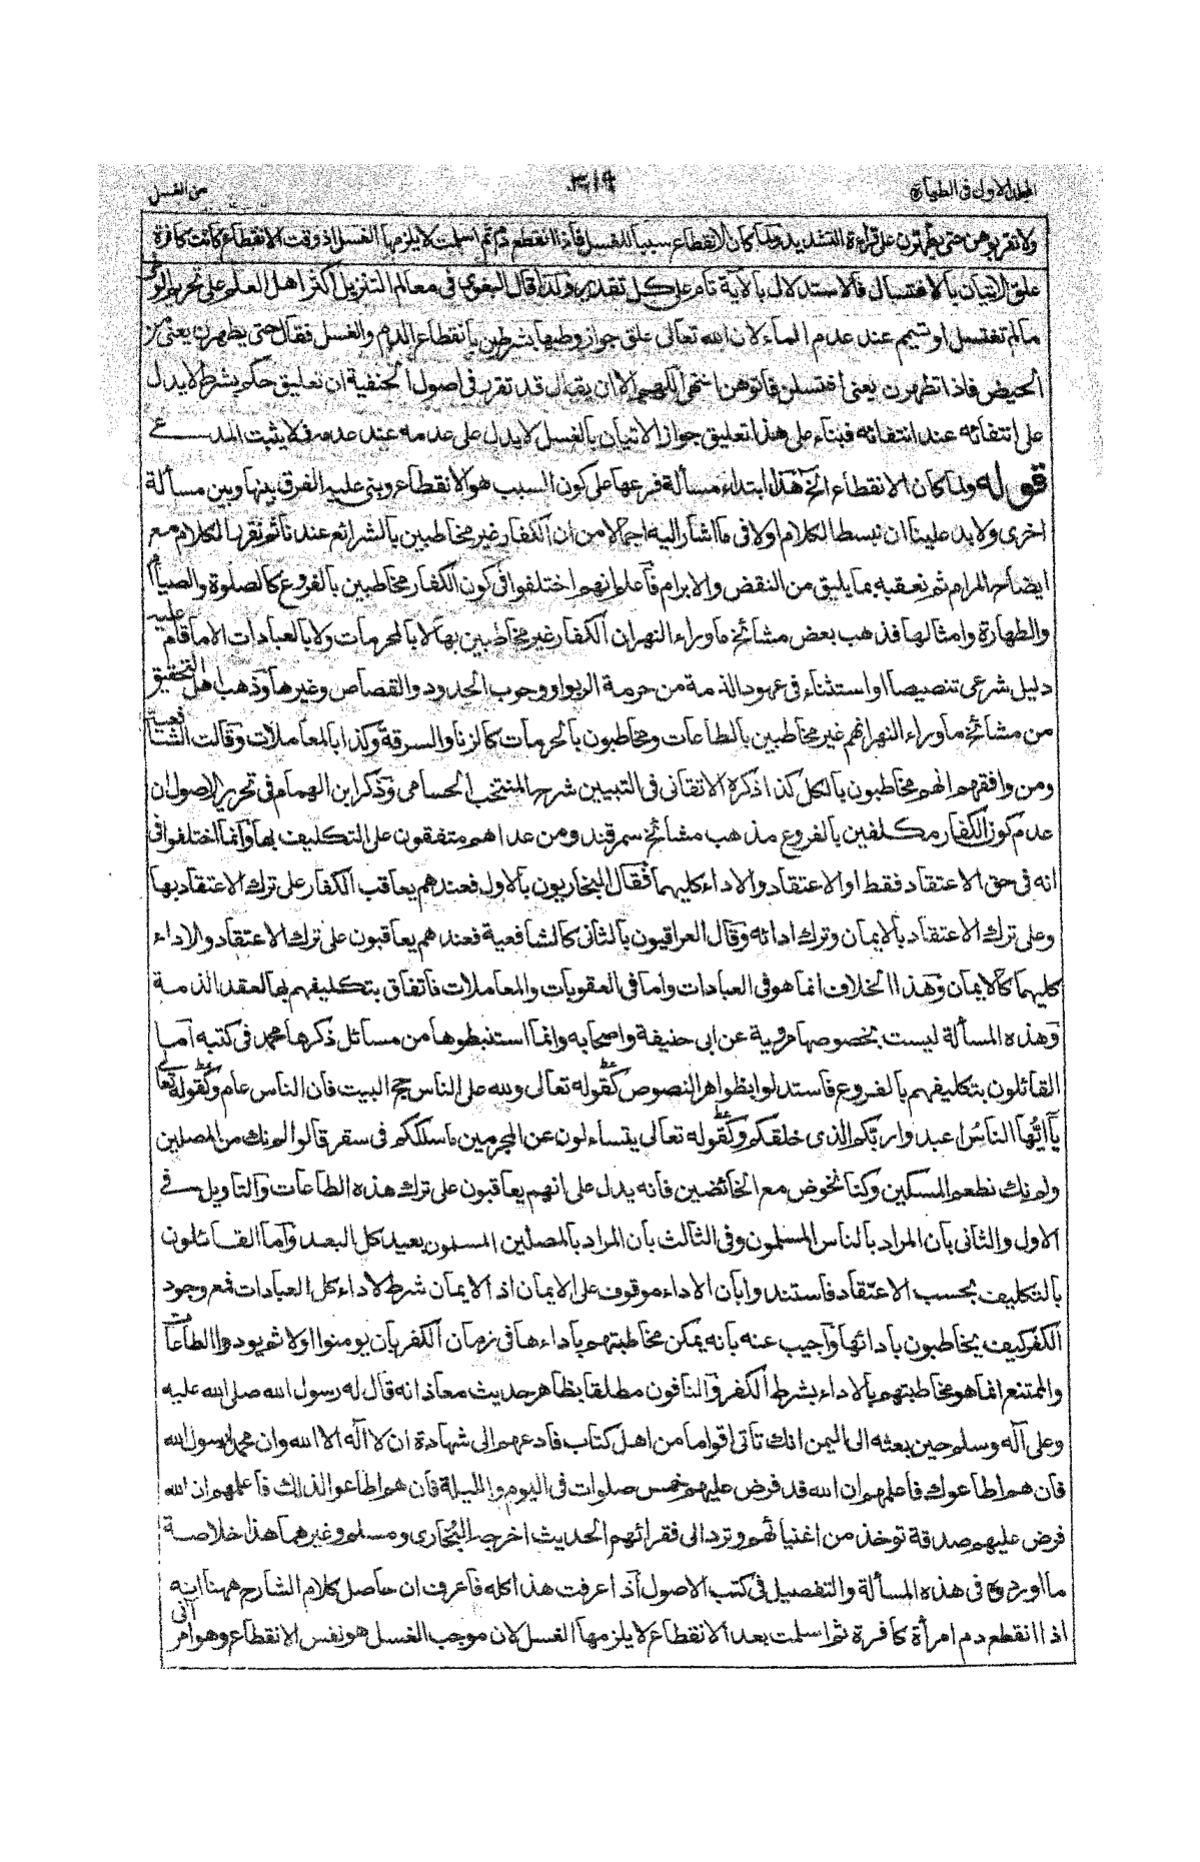 المجلد الاول فى الطهارة
٣١٩
من الغسل
ولا تقربوهن حتى يطهرن على قراءة التشديد ولما كان الانقطاع سببا للغسل فاذا انقطع ثم اسلمت لا يلزمها الغسل اذ وقت الانقطاع كانت كافرة
علق الاتيان بالاغتسال فالاستدلال بالآية تام على كل تقدير ولذا قال البغوى فى معالم التنزيل اكثر اهل العلم على تحريم الوطى
مالم تغتسل او تتيمم عند عدم الماء لان الله تعالى علق جواز وطيها بشرطين بانقطاع الدم والغسل فقال حتى يطهرن يعنى من
الحيض فاذا تطهرن يعنى اغتسلن فاتوهن انتهى اللهم الا ان يقال قد تقرر فى اصول الحنفية ان تعليق حكم بشرط لا يدل
على انتفائه عند انتفائه فبناء على هذا تعليق جواز الاتيان بالغسل لا يدل على عدمه عند عدمه فلا يثبت المدعى
قوله ولما كان الانقطاع الخ هذا ابتداء مسألة فرعها على كون السبب هو الانقطاع وبنى عليه الفرق بينها وبين مسألة
اخرى ولا بد علينا ان نبسط الكلام اولا فى ما اشار اليه اجمالا من ان الكفار غير مخاطبين بالشرائع عندنا ثم نقرر الكلام مع
ايضاح المرام ثم نعقبه بما يليق من النقض والابرام فاعلم انهم اختلفوا فى كون الكفار مخاطبين بالفروع كالصلوة والصيام
والطهارة وامثالها فذهب بعض مشائخ ما وراء النهر ان الكفار غير مخاطبين بها لا بالمحرمات ولا بالعبادات الا ما قام عليه
دليل شرعى تنصيصا او استثناء فى عهود الذمة من حرمة الربوا ووجوب الحدود والقصاص وغيرها وذهب اهل التحقيق
من مشائخ ما وراء النهر انهم غير مخاطبين بالطاعات ومخاطبون بالحرمات كالزنا والسرقة وكذا بالمعاملات وقالت الشافعية
ومن وافقهم انهم مخاطبون بالكل كذا ذكره الاتقانى فى التبيين شرح المنتخب الحسامى وذكر ابن الهمام فى تحرير الاصول ان
عدم كون الكفار مكلفين بالفروع مذهب مشائخ سمرقند ومن عداهم متفقون على التكليف بها وانما اختلفوا فى
انه فى حق الاعتقاد فقط او الاعتقاد والاداء كليهما فقال البخاريون بالاول فعندهم يعاقب الكفار على ترك الاعتقاد بها
وعلى ترك الاعتقاد بالايمان وترك ادائه وقال العراقيون بالثانى كالشافعية فعندهم يعاقبون على ترك الاعتقاد والاداء
كليهما كالايمان وهذا الخلاف انما هو فى العبادات واما فى العقوبات والمعاملات فاتفاق بتكليفهم بها لعقد الذمة
وهذه المسألة ليست بخصوصها مروية عن ابى حنيفة واصحابه وانما استنبطوها من مسائل ذكرها محمد فى كتبه اما
القائلون بتكليفهم بالفروع فاستدلوا بظواهر النصوص كقوله تعالى ولله على الناس حج البيت فان الناس عام وكقوله تعالى
يآايُّها الناسُ اعبدوا ربّكم الذى خلقكم وكقوله تعالى يتساءلون عن المجرمين ما سلككم فى سقر قالوا لم نك من المصلين
ولم نك نطعم المسكين وكنا نخوض مع الخائضين فانه يدل على انهم يعاقبون على ترك هذه الطاعات والتاويل فى
الاول والثانى بان المراد بالناس المسلمون وفى الثالث بان المراد بالمصلين المسلمون بعيد كل البعد واما القائلون
بالتكليف بحسب الاعتقاد فاستندوا بان الاداء موقوف على الايمان اذ الايمان شرط لاداء كل العبادات فمع وجود
الكفر كيف يخاطبون بادائها واجيب عنه بانه يمكن مخاطبتهم باداءها فى زمان الكفر بان يومنوا اولا ثم يودوا الطاعات
والممتنع انما هو مخاطبتهم بالاداء بشرط الكفر والنافون مطلقا بظاهر حديث معاذ انه قال له رسول الله صلى الله عليه
وعلى آله وسلم حين بعثه الى اليمن انك تاتى اقواما من اهل كتاب فادعهم الى شهادة ان لا اله الا الله وان محمدا رسول الله
فان هم اطاعوك فاعلمهم ان الله قد فرض عليهم خمس صلوات فى اليوم والليلة فان هم اطاعوا لذلك فاعلمهم ان الله
فرض عليهم صدقة توخذ من اغنيائهم وترد الى فقرائهم الحديث اخرجه البخارى ومسلم وغيرهما هذا خلاصة
ما اوردوه فى هذه المسألة والتفصيل فى كتب الاصول اذا عرفت هذا كله فاعرف ان حاصل كلام الشارح ههنا انه
اذا انقطع دم امرأة كافرة ثم اسلمت بعد الانقطاع لا يلزمها الغسل لان موجب الغسل هو نفس الانقطاع وهو امر آنى